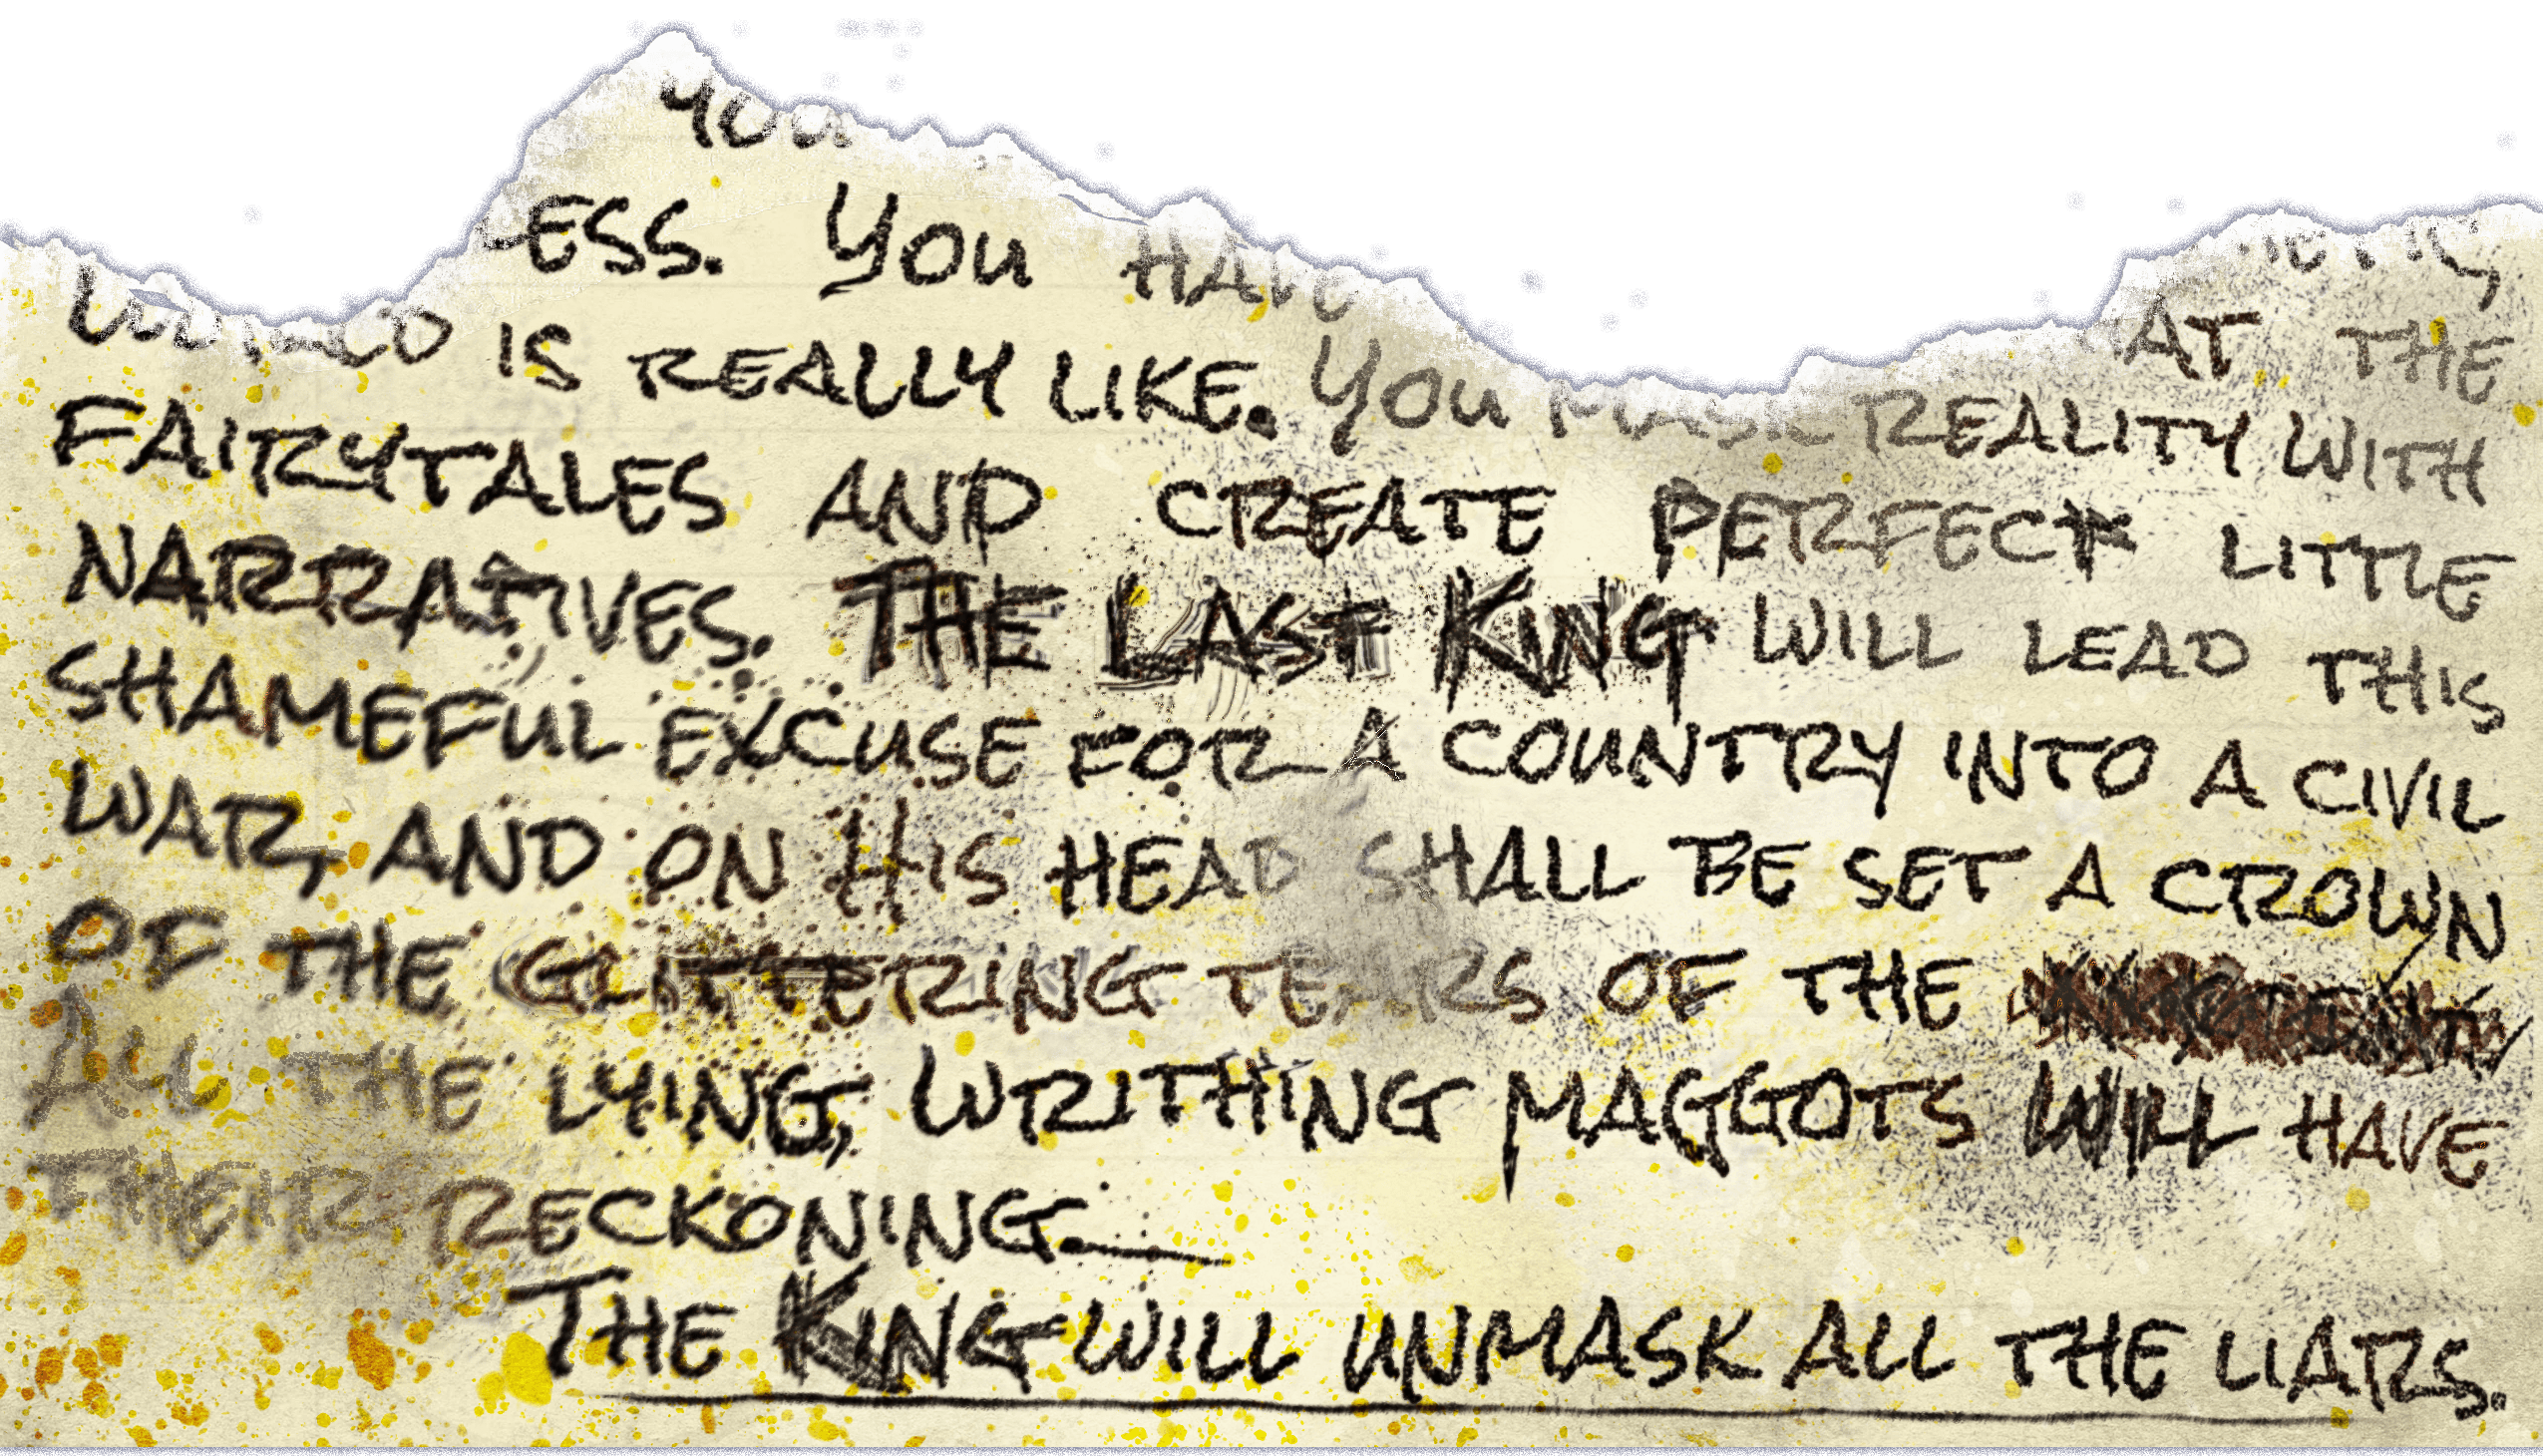 You
ESS. You HAVE
IS REALLY LIKE. You MASK REALITY WITH
AT THE
FAIRYTALES AND CREATE PERFECT LITTLE
NARRATIVES. THE LAST KING WILL LEAD THIS
SHAMEFUL EXCUSE FOR A COUNTRY INTO A CIVIL
WAR, AND ON HIS HEAD SHALL BE SET A CROWN
OF THE GLITTERING TEARS OF THE
ALL THE LYING, WRITHING MAGGOTS WILL HAVE
THEIR RECKONING.
THE KING WILL UNMASK ALL THE LIARS.